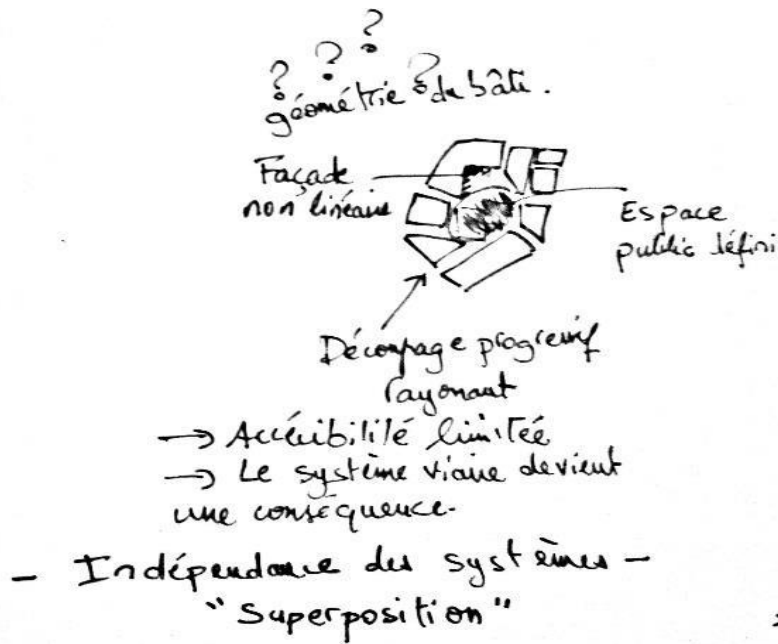 ? ? ? ?
géométrie du bâti.
Façade
non linéaire
Espace
public défini
Découpage progressif
rayonant
→ Accéssibilité limitée
→ Le système viaire devient
une conséquence.
- Indépendance des systèmes -
"Superposition"